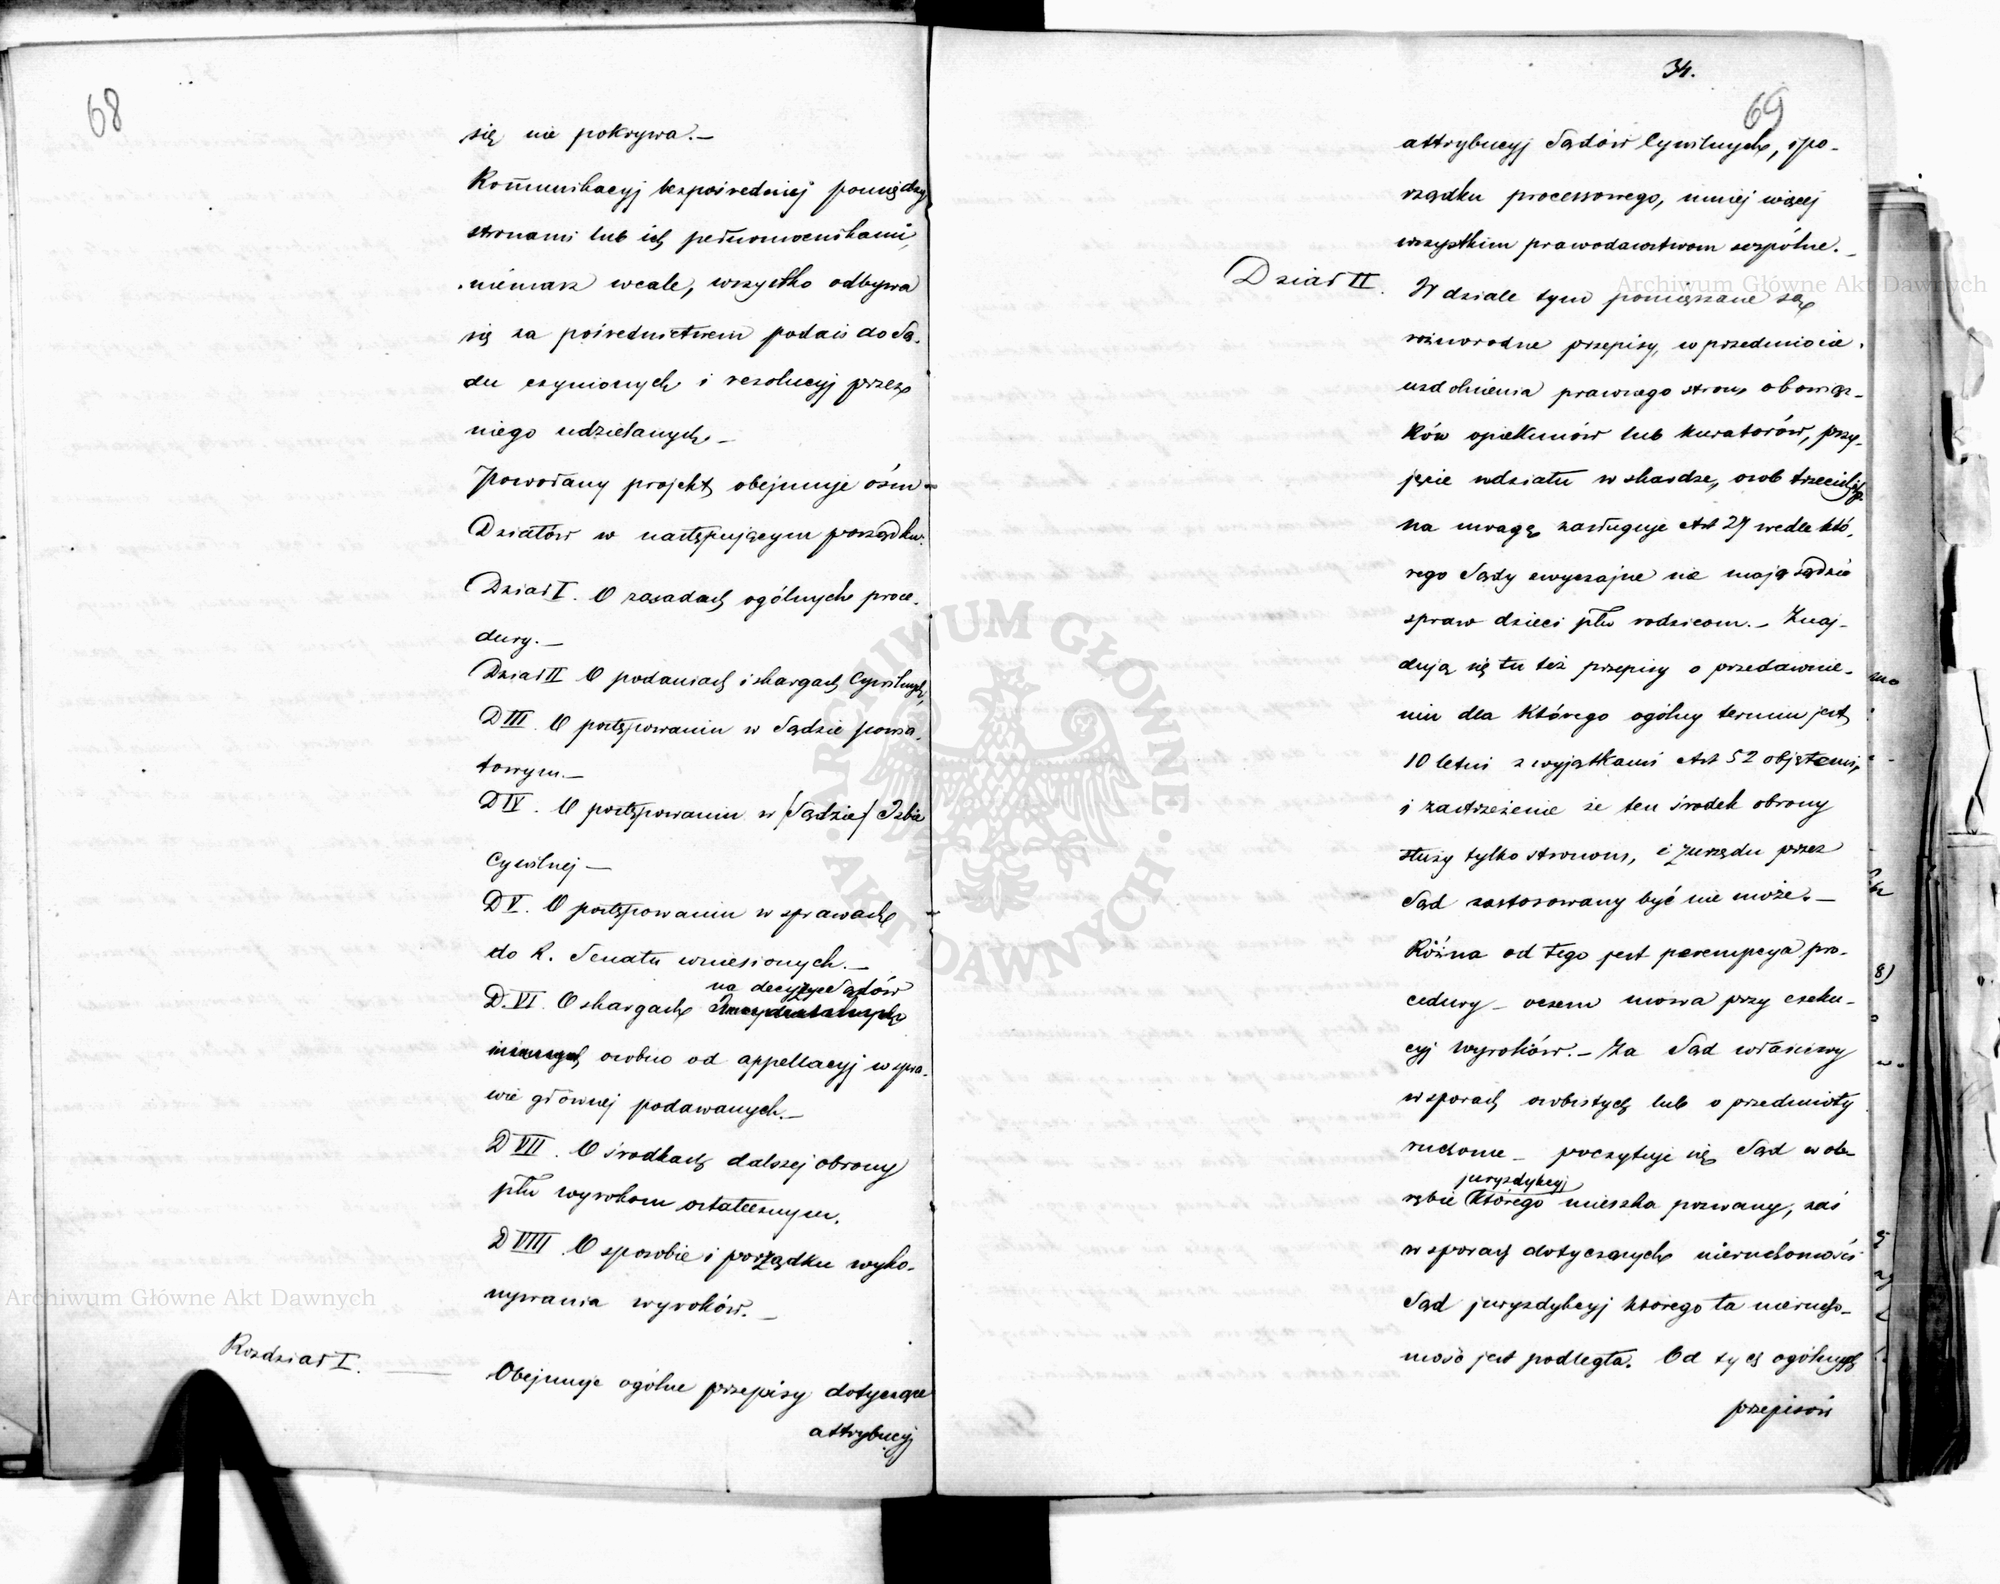 68
się nie pokrywa. —
Kommunikacyj bezpośredniej pomiędzy
stronami lub ich pełnomocnikami,
niémasz wcale, wszystko odbywa
się za pośrednictwem podań do Są-
du czynionych i rezolucyj przez
niego udzielanych. —
Powołany projekt obejmuje ośm
Działów w następującym porządku.
Dział I. O zasadach ogólnych proce-
dury. —
Dział II O podaniach i skargach Cywilnych,
D III. O postępowaniu w Sądzie powia-
towym. —
D IV. O postępowaniu w (Sądzie) Izbie
Cywilnej —
D V. O postępowaniu w sprawach
do R. Senatu wniesionych. —
na decyzye Sądów
D. VI. O skargach
osobno od appellacyj w spra-
wie głównej podawanych. —
D VII. O środkach dalszej obrony
płu wyrokom ostatecznym.
D VIII. O sposobie i porządku wyko-
nywania wyroków. —
Rozdział I. —
Obejmuje ogólne przepisy dotyczące
attrybucyj
34.
69
attrybucyj Sądów Cywilnych, i po-
rządku processowego, mniej więcej
wszystkim prawodawstwom wspólne. —
Dział II.
W dziale tym pomięszane są
różnorodne przepisy, w przedmiocie
uzdolnienia prawnego stron, obowiąz-
ków opiekunów lub kuratorów, przy-
jęcie udziału w skardze, osob trzecich,
na uwagę zasługuje Art 27 wedle któ-
rego Sądy zwyczajne nie mają sądzić
spraw dzieci płu rodzicom. — Znaj-
dują się tu też przepisy o przedawnie-
niu dla którego ogólny termin jest
10 letni z wyjątkami Art 52 objętemi,
i zastrzeżenie że ten środek obrony
służy tylko stronom, i z urzędu przez
Sąd zastosowany być nie może. —
Różna od tego jest perempcya pro-
cedury — oczem mowa przy exeku-
cyj wyroków. — Za Sąd właściwy
w sporach osobistych lub o przedmioty
ruchome — poczytuje się Sąd w ob-
jurysdykcyj
rębie którego mieszka pozwany, zaś
w sporach dotyczących nieruchomości
Sąd jurysdykcyj którego ta nierucho-
mość jest podległa. Od tych ogólnych
przepisów
Archiwum Główne Akt Dawnych
Archiwum Główne Akt Dawnych
ARCHIWUM GŁÓWNE · AKT DAWNYCH ·